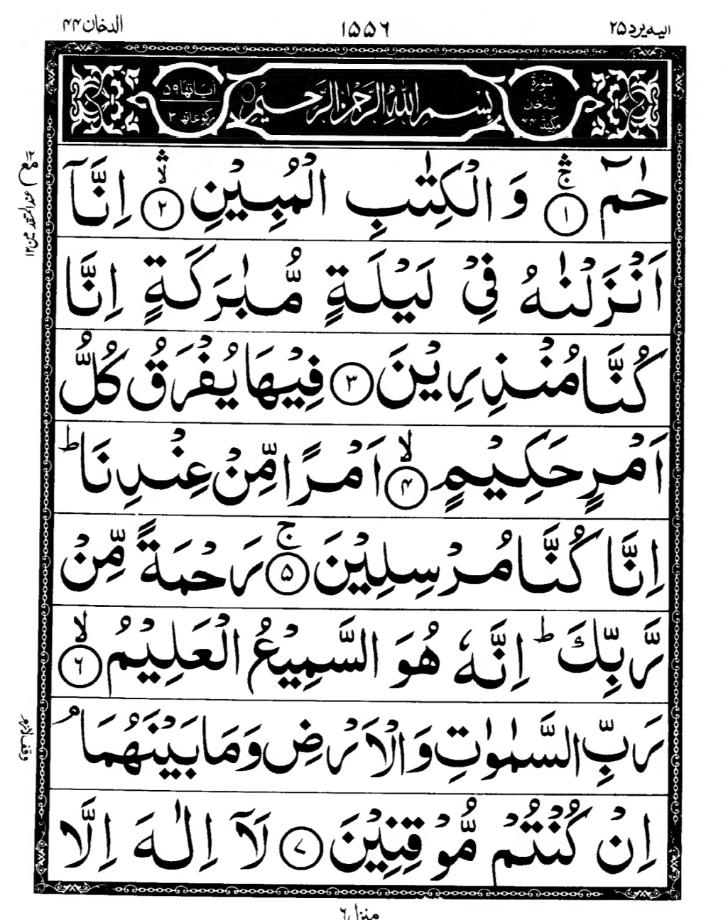 الیه یرد ۲۵
۱۵۵۶
الدخان ۴۴
سورة الدخان مکیة ۴۴
بِسْمِ اللهِ الرَّحْمٰنِ الرَّحِيْمِ
اٰیاتها ۵۹
رکوعاتها ۳
حٰمٓ ۚۛ ﴿۱﴾ وَ الْكِتٰبِ الْمُبِيْنِ ۙۛ ﴿۲﴾ اِنَّاۤ
اَنْزَلْنٰهُ فِيْ لَيْلَةٍ مُّبٰرَكَةٍ اِنَّا
كُنَّا مُنْذِرِيْنَ ﴿۳﴾ فِيْهَا يُفْرَقُ كُلُّ
اَمْرٍ حَكِيْمٍ ۙ ﴿۴﴾ اَمْرًا مِّنْ عِنْدِنَا ؕ
اِنَّا كُنَّا مُرْسِلِيْنَ ۚ ﴿۵﴾ رَحْمَةً مِّنْ
رَّبِّكَ ؕ اِنَّهٗ هُوَ السَّمِيْعُ الْعَلِيْمُ ۙ ﴿۶﴾
رَبِّ السَّمٰوٰتِ وَ الْاَرْضِ وَ مَا بَيْنَهُمَا ۘ
اِنْ كُنْتُمْ مُّوْقِنِيْنَ ﴿۷﴾ لَاۤ اِلٰهَ اِلَّا
منزل ۶